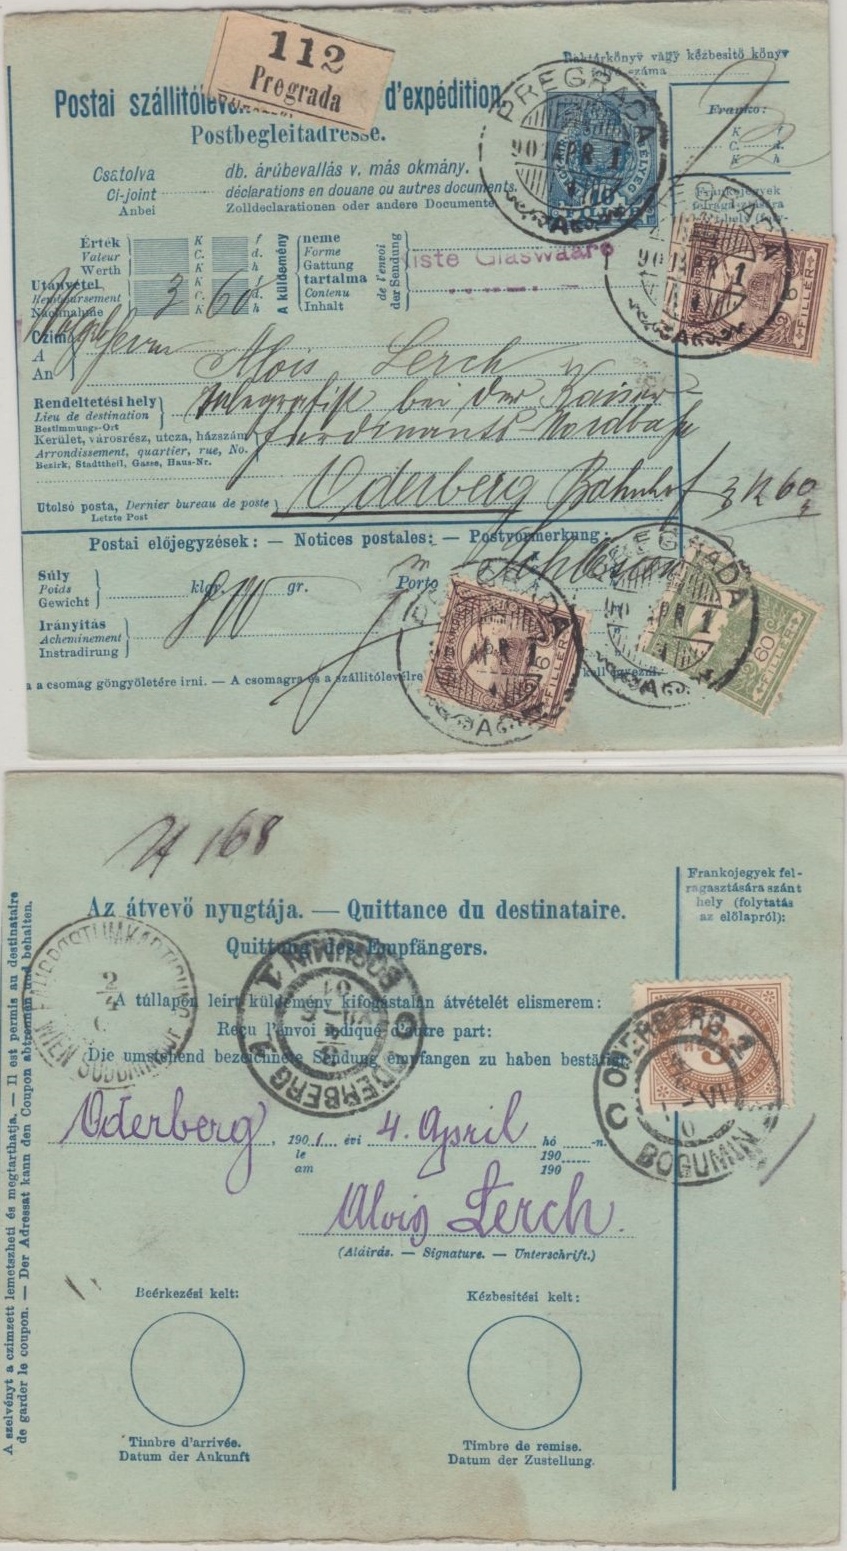 112
Pregrada
Raktárkönyv vagy kézbesitő könyv
száma
Postai szállitóleve d'expédition
Postbegleitadresse.
PREGRADA
901 APR 1
Franko:
K f
C. d.
K h
Csatolva
Ci-joint
Anbei
db. árúbevallás v. más okmány.
déclarations en douane ou autres documents.
Zolldeclarationen oder andere Documente.
10
FILLÉR
Érték K f
Valeur C. d.
Werth K h
Utánvétel K f
Remboursement C. d.
Nachnahme K h
3 60
A küldemény
neme
Forme
Gattung
tartalma
Contenu
Inhalt
de l'envoi
der Sendung
iste Glaswaare
901 APR 1
6
FILLÉR
Czim
A
An
Herrn Alois Lerch
Rendeltetési hely
Lieu de destination
Bestimmungs-Ort
Kerület, városrész, utcza, házszám
Arrondissement, quartier, rue, No.
Bezirk, Stadttheil, Gasse, Haus-Nr.
Telegrafist bei der Kaiser
Ferdinands Nordbahn
Utolsó posta, Dernier bureau de poste
Letzte Post
Oderberg Bahnhof 3 K 60
Postai előjegyzések: — Notices postales: — Postvormerkung:
Schlesien
Súly
Poids
Gewicht
klgr. gr. Porto
Irányítás
Acheminement
Instradirung
PREGRADA
APR 1
6
FILLÉR
PREGRADA
APR 1
60
FILLÉR
a a csomag göngyöletére irni. — A csomagra és a szállitólevélre kell egyezni.
168
Frankojegyek fel-
ragasztására szánt
hely (folytatás
az előlapról):
Az átvevő nyugtája. — Quittance du destinataire.
Quittung des Empfängers.
A túllapon leirt küldemény kifogástalan átvételét elismerem:
Reçu l'envoi indiqué d'autre part:
Die umstehend bezeichnete Sendung empfangen zu haben bestätigt:
2
4
WIEN
ODERBERG 1
BOGUMIN 1
ODERBERG 1
BOGUMIN
Oderberg, 1901 évi 4. April hó -n.
le 190
am 190
Alois Lerch.
(Aláirás. — Signature. — Unterschrift.)
A szelvényt a czimzett lemetszheti és megtarthatja. — Il est permis au destinataire
de garder le coupon. — Der Adressat kann den Coupon abtrennen und behalten.
Beérkezési kelt:
Kézbesitési kelt:
Timbre d'arrivée.
Datum der Ankunft
Timbre de remise.
Datum der Zustellung.